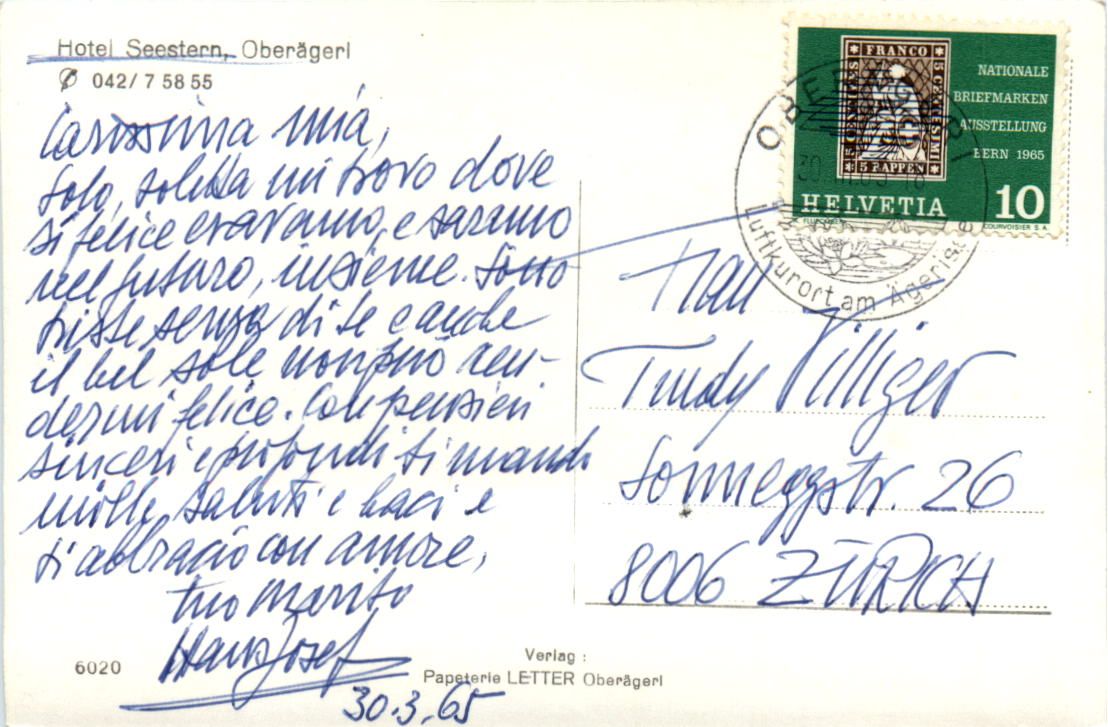 Hotel Seestern, Oberägeri
042/ 7 58 55
Carissima mia,
Solo, soletta mi trovo dove
sì felice eravamo, e saremo
nel futuro, insieme. Sono
triste senza di te e anche
il bel sole non può ren-
dermi felice. Con pensieri
sinceri e profondi ti mando
mille saluti e baci e
ti abbraccio con amore,
tuo marito
Hans Josef
30.3.65
6020
Verlag :
Papeterie LETTER Oberägeri
FRANCO
5 CENTIMES
5 CENTESIMI
5 RAPPEN
NATIONALE
BRIEFMARKEN
AUSSTELLUNG
BERN 1965
HELVETIA 10
COURVOISIER S.A.
OBERÄGERI
Luftkurort am Ägerisee
Frau
Trudy Villiger
Sonneggstr. 26
8006 ZÜRICH